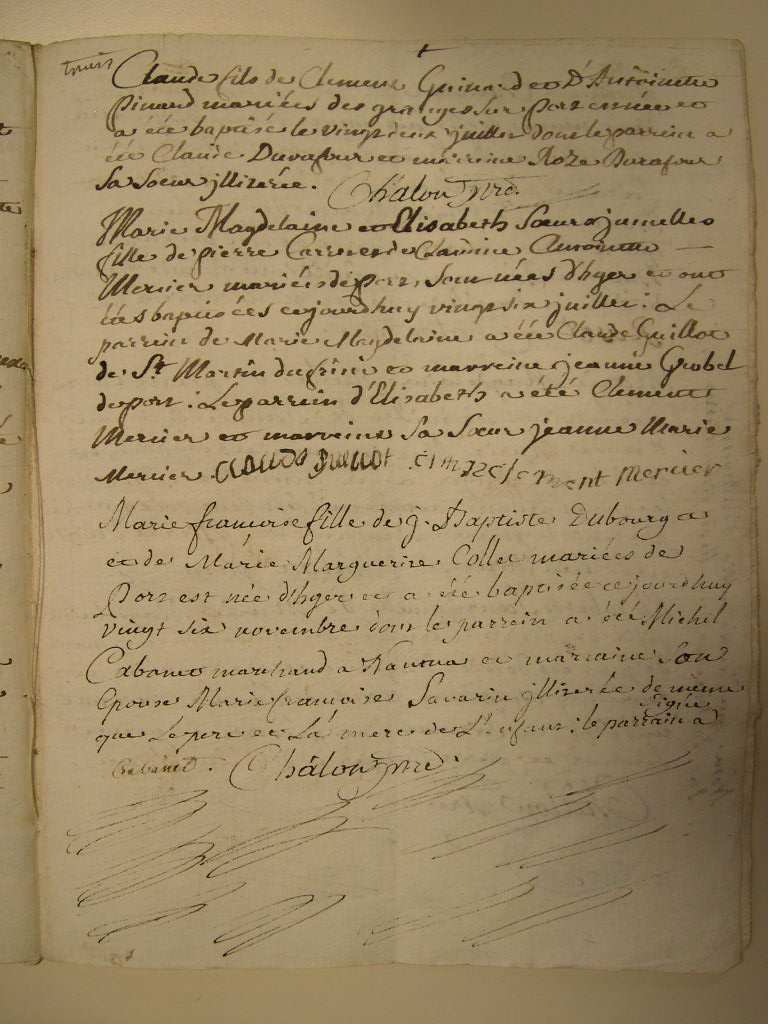 Claude fils de Clement Guinard et D'Antoinette
pinard mariées des granges sur port est née et
a été baptisé le vingt deux juillet dont le parrein a
été Claude Durafour et marreine Roze Durafour
sa soeur jllitérée. Châlon
Marie Magdelaine et Elisabeth soeurs jumelles
fille de pierre et de Antoinette
Mercier mariés de port sont nées d'hyer et ont
étés baptisées cejourdhuy vingt six juillet: Le
parrein de Marie Magdelaine a été Claude Guillot
de St. Martin du et marreine jeanne Grobel
de port: Le parrein d'Elisabeth a été Clement
Mercier et marreine sa soeur jeanne Marie
Mercier. Claude Guillot Clement Mercier
Marie francoise fille de j. Baptiste Dubourg a
et de Marie Marguerite Collet mariées de
Port est née d'hyer et a été baptisée cejourdhuy
vingt six novembre dont le parrein a été Michel
Cabanet marchand a Nantua et marraine son
Epouse Marie francoise Savarin jllitérée de même
que Le pere et La mere de L'enfant: le parrain a signé
Cabanet. Châlon